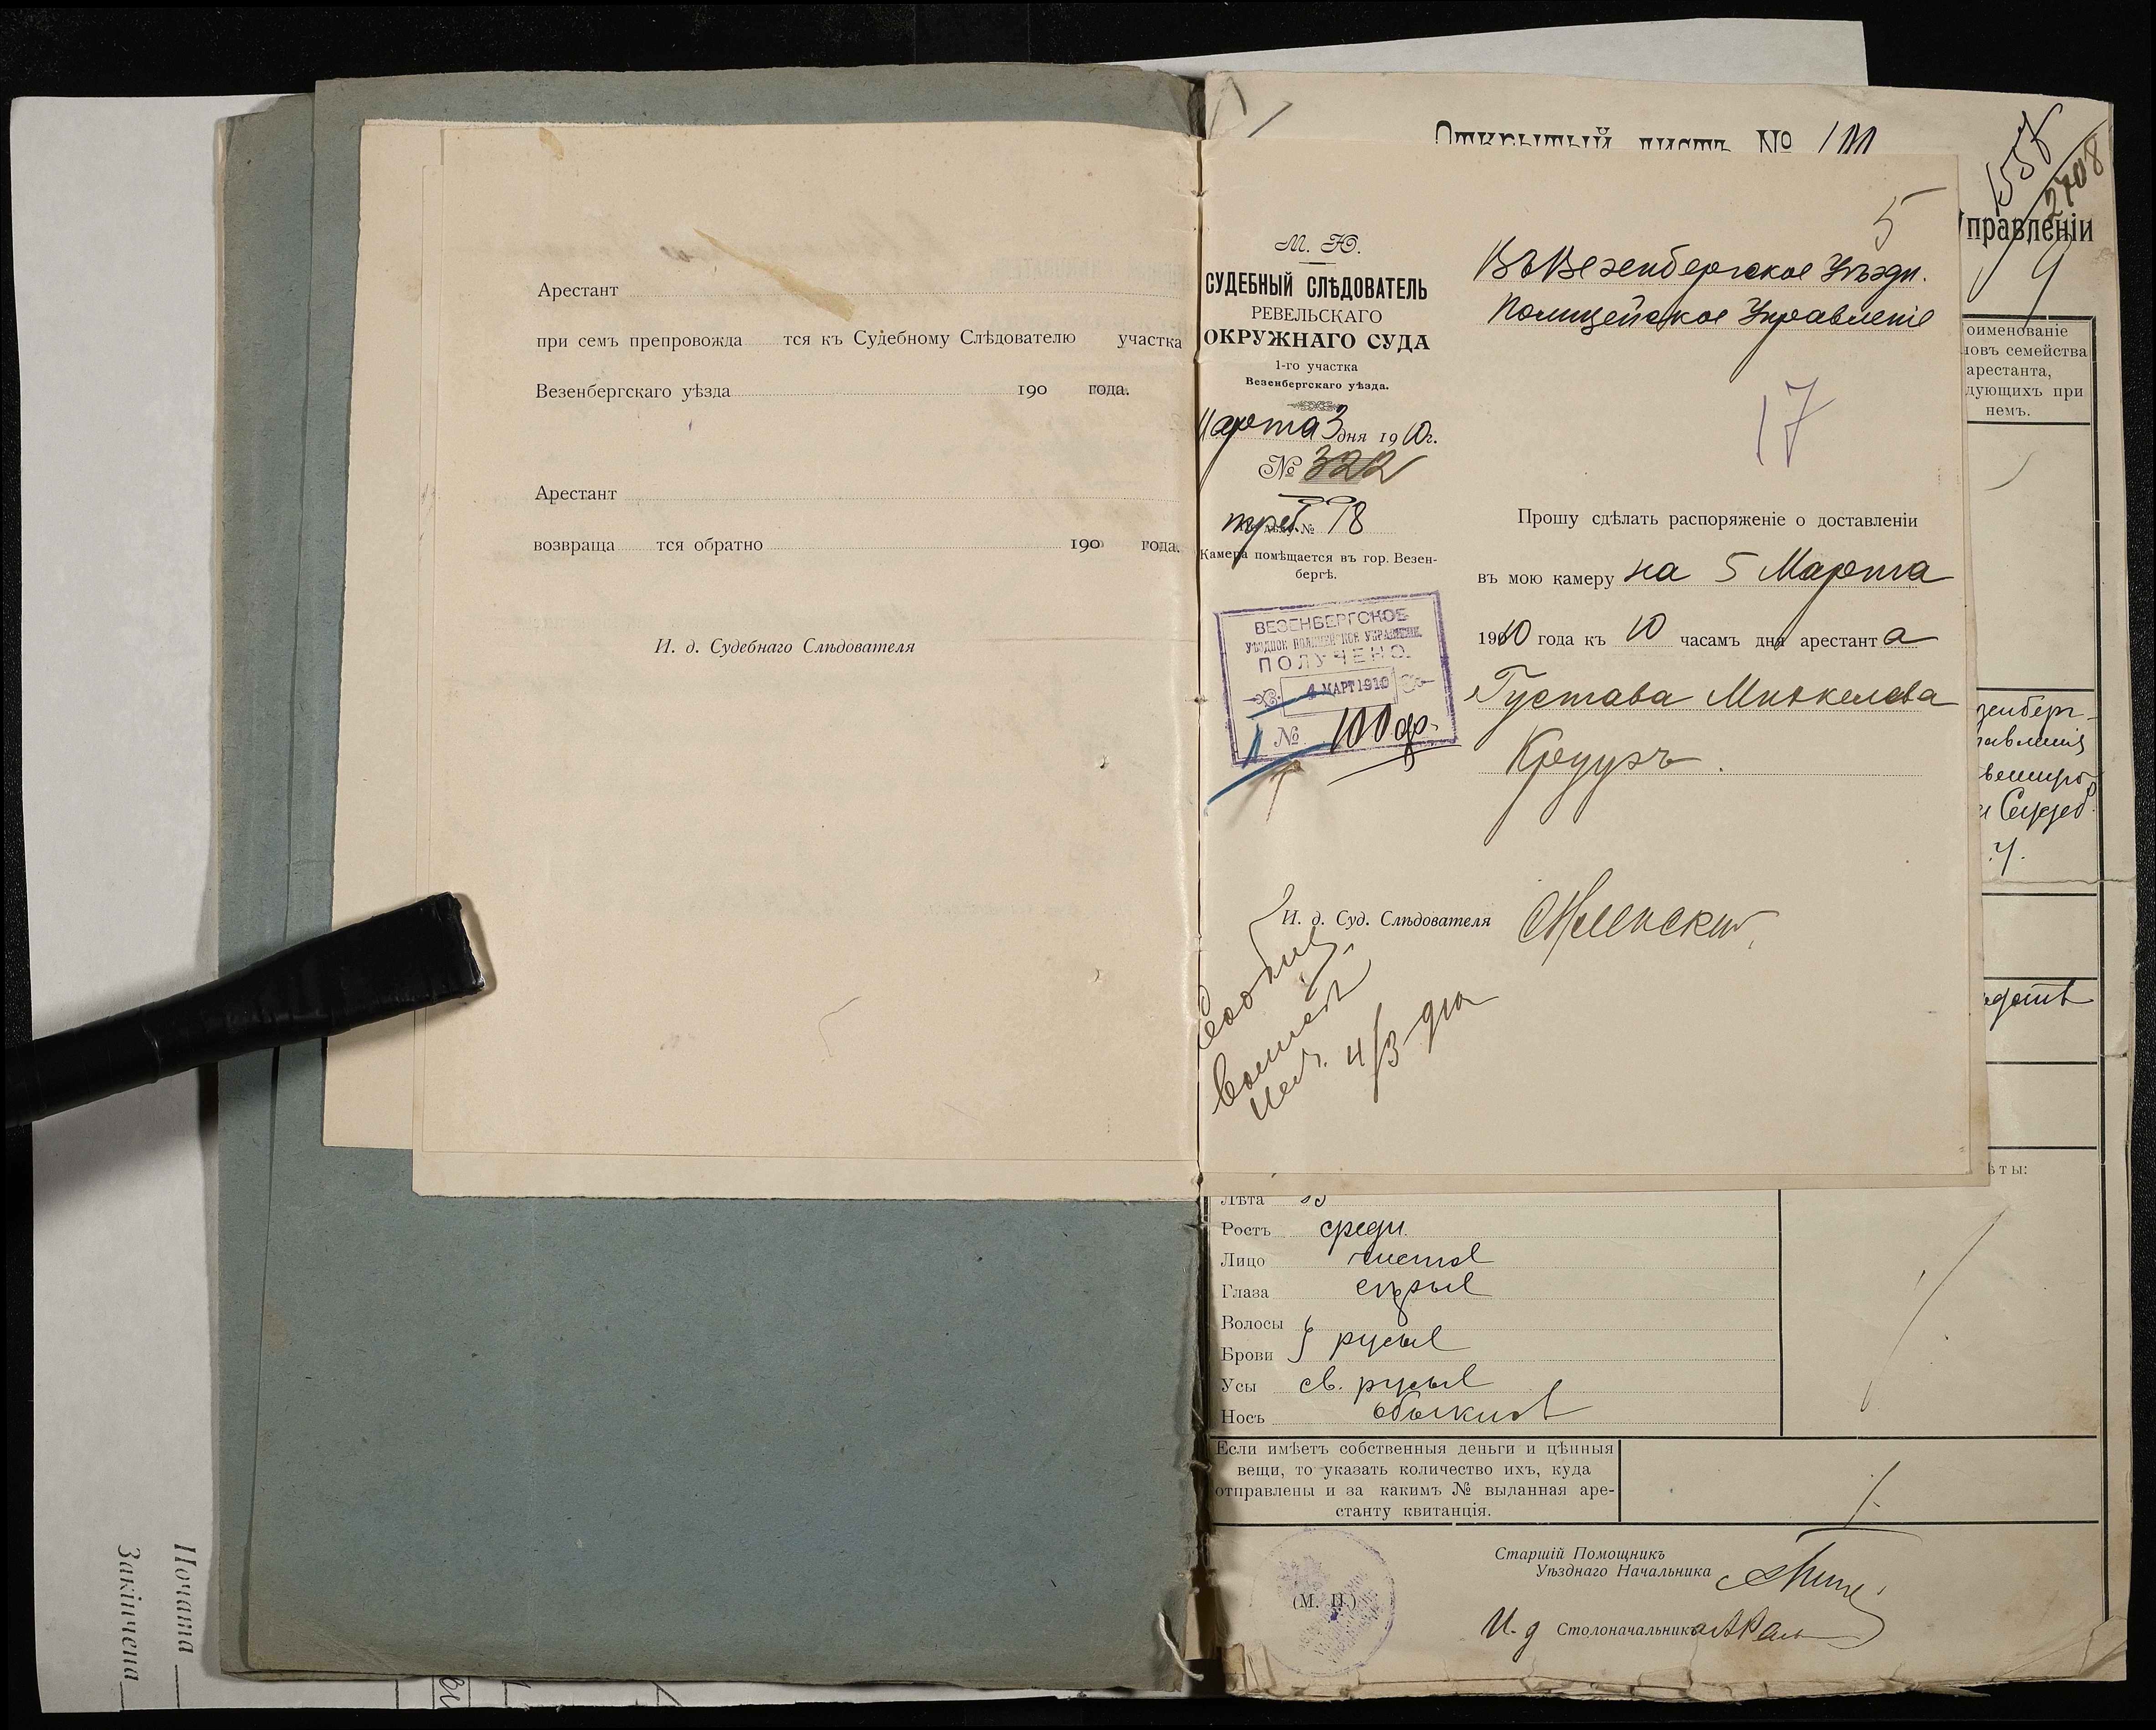 Арестант
при семъ препровожда тся къ Судебному Слѣдователю участка
Везенбергскаго уѣзда 190 года.
Арестант
возвраща тся обратно 190 года.
И. д. Судебнаго Слѣдователя
Открытый листъ №
5
М. Ю.
СУДЕБНЫЙ СЛѢДОВАТЕЛЬ
РЕВЕЛЬСКАГО
ОКРУЖНАГО СУДА
1-го участка
Везенбергскаго уѣзда.
Марта 3 дня 1910 г.
№ 322
треб. 78
Камера помѣщается въ гор. Везен-
бергѣ.
ВЕЗЕНБЕРГСКОЕ
УѢЗДНОЕ ПОЛИЦЕЙСКОЕ УПРАВЛЕНІЕ
ПОЛУЧЕНО.
4 МАРТ 1910
№ 100
Въ Везенбергское Уѣздн.
Полицейское Управленіе
17
Прошу сдѣлать распоряженіе о доставленіи
въ мою камеру на 5 Марта
1910 года къ 10 часамъ дня арестанта
Густава Миккелева
Круузъ.
И. д. Суд. Слѣдователя
4/3
1557
2708
Управленіи
оименованіе
новъ семейства
арестанта,
дующихъ при
немъ.
ѣты:
Лѣта
Ростъ средн.
Лицо чистое
Глаза сѣрые
Волосы
Брови русые
Усы св. русые
Носъ обыкнов
Если имѣетъ собственныя деньги и цѣнныя
вещи, то указать количество ихъ, куда
отправлены и за какимъ № выданная аре-
станту квитанція.
Старшій Помощникъ
Уѣзднаго Начальника
(М. П.)
И. д Столоначальника
Почата
Закінчена